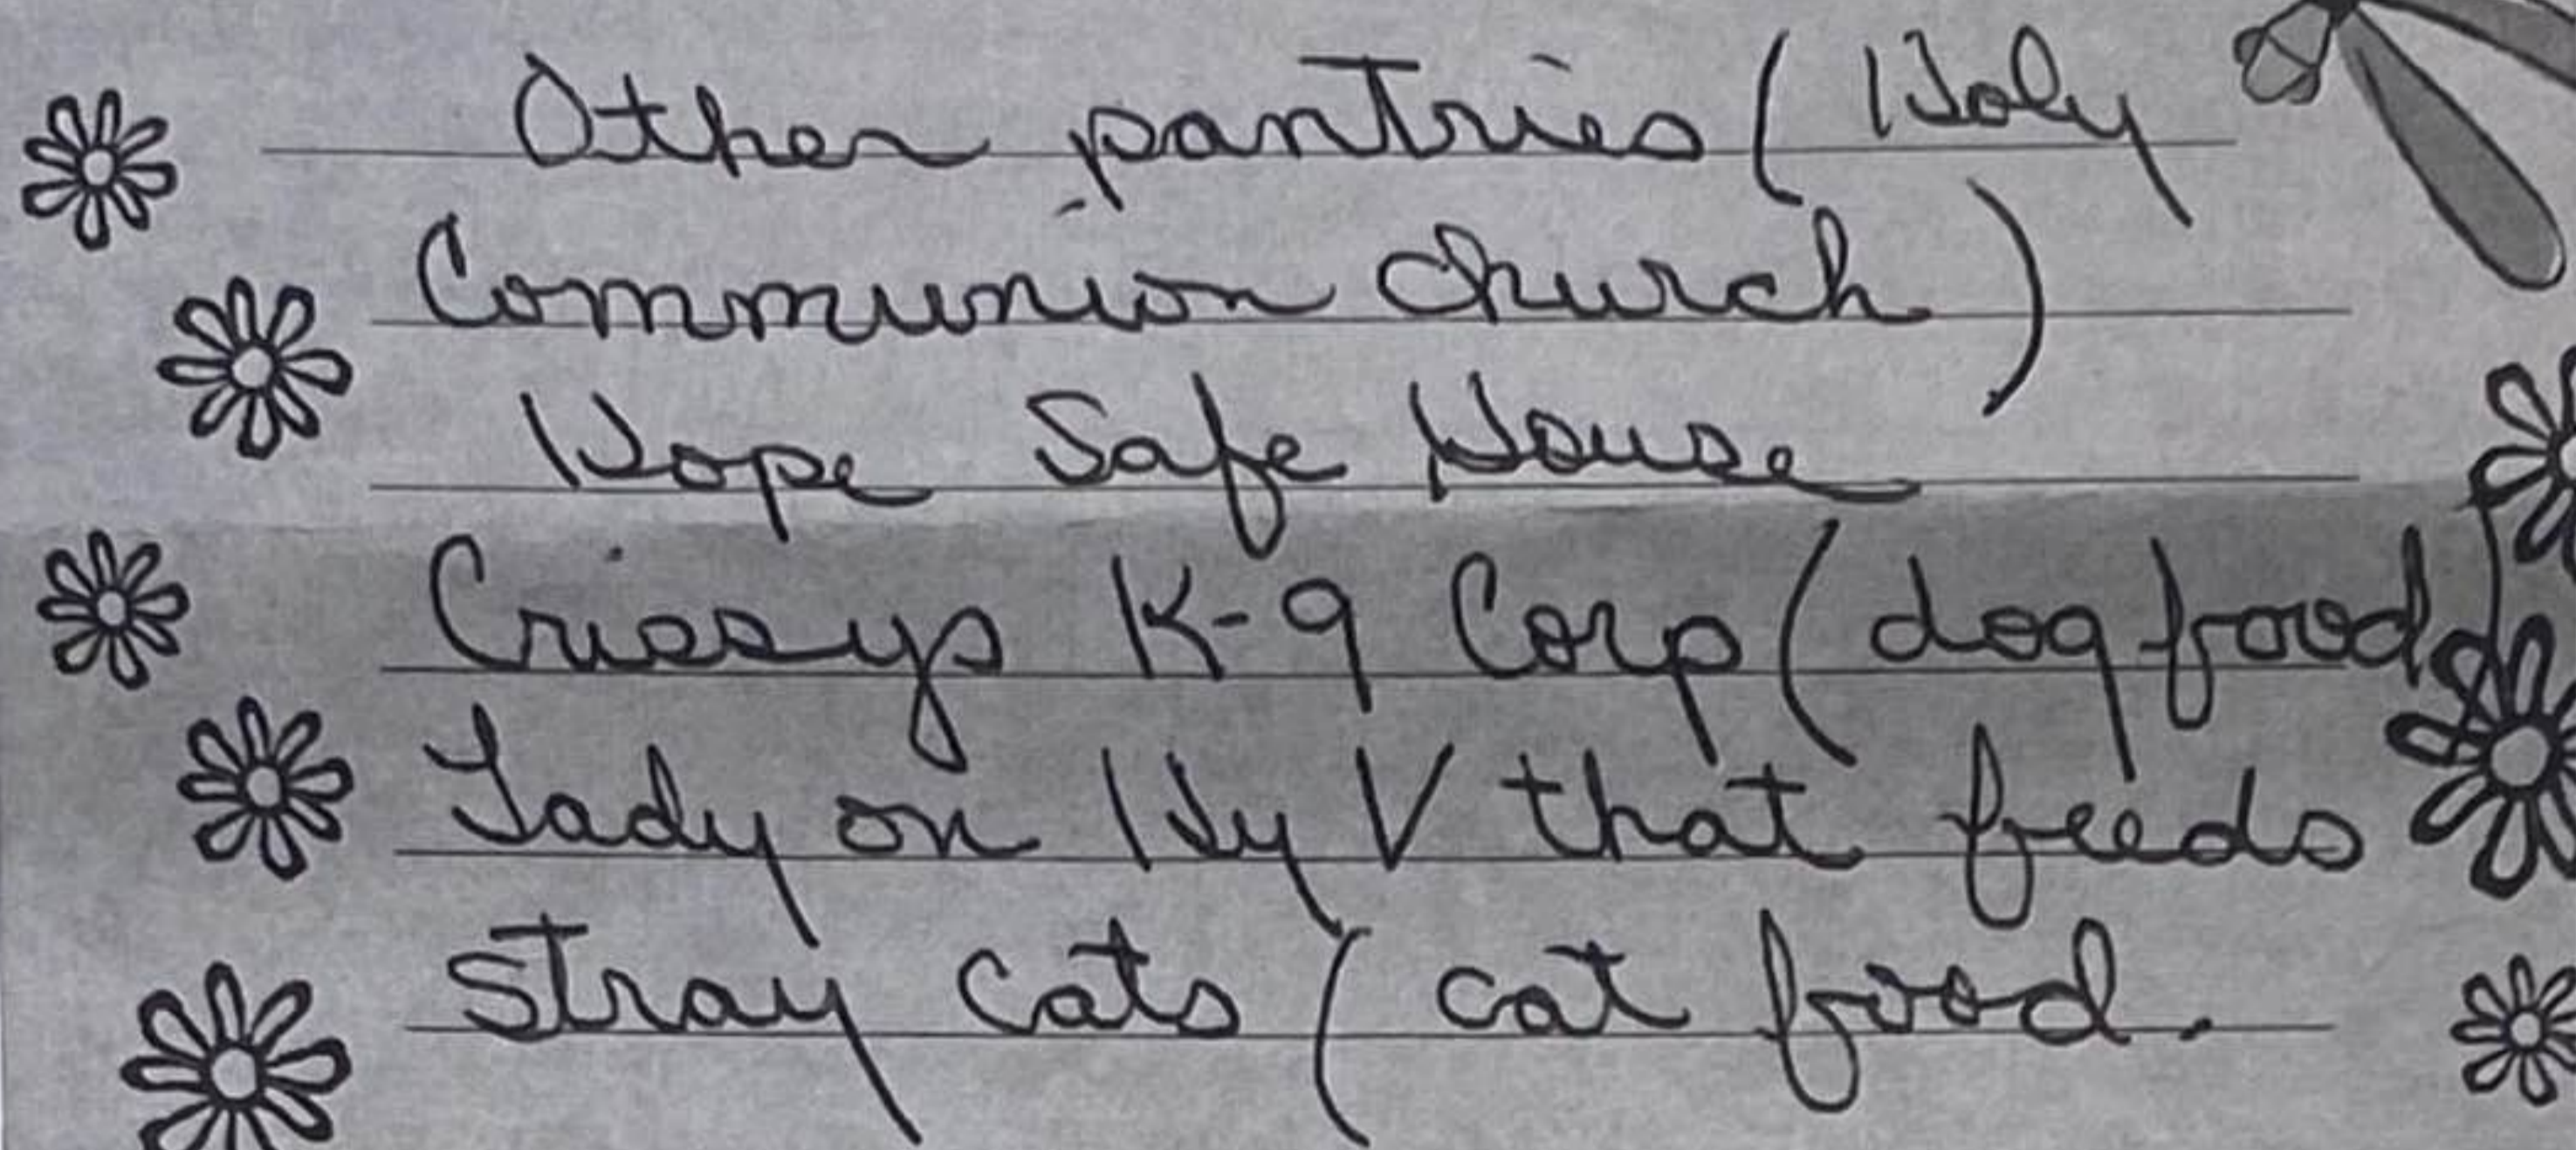 Other pantries (Holy
Communion Church)
Hope Safe House
Crissys K-9 Corp (dog food)
Lady on Hy V that feeds
stray cats (cat food.